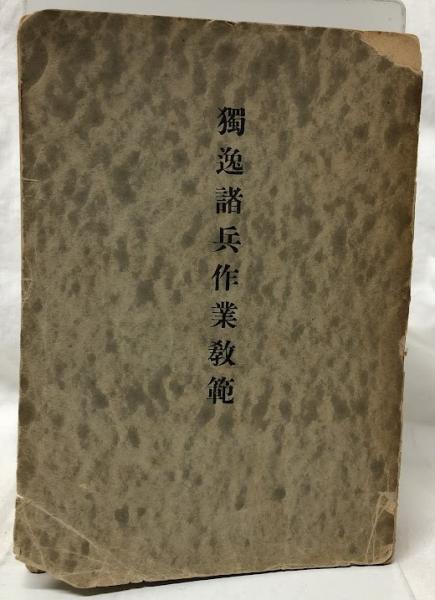 獨逸諸兵作業教範